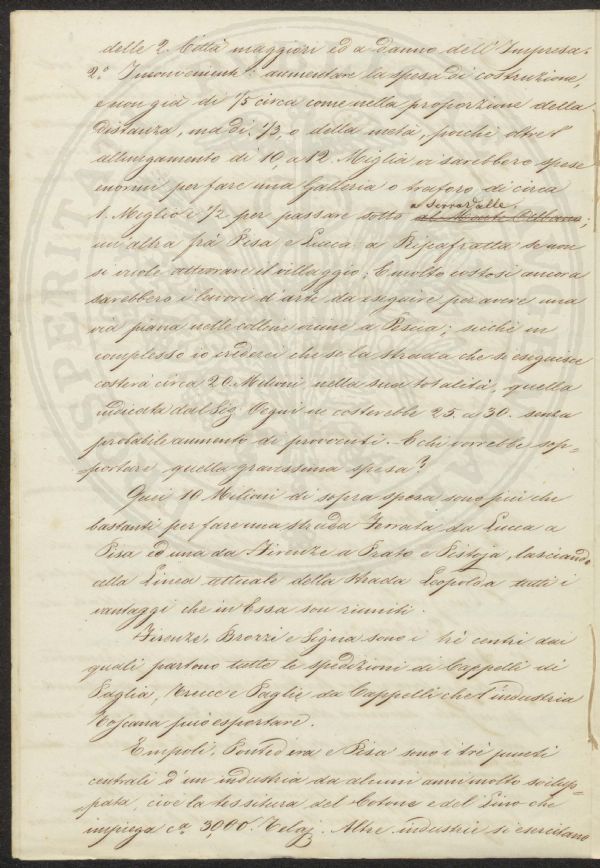 delle 2. Città maggiori ed a danno dell'Impresa.
2.° Inconveniente: aumentare la spesa di costruzione,
e non già di 1/5 circa come nella proporzione della
distanza, ma di 1/3, o della metà, poiche oltre l'
allungamento di 10, a 12. Miglia ci sarebbero spese
enormi per fare una Galleria o traforo di circa
1. Miglio e 1/2 per passare sotto al Monte
a Serravalle;
un altra frà Pisa e Lucca a Ripafratta se non
si vuole atterrare il villaggio; E molto costosi ancora
sarebbero i lavori d'arte da eseguire per avere una
via piana nelle colline vicine a Pescia; sicchè in
complesso io crederei che se la strada che si eseguisce
costerà circa 20. Milioni nella sua totalità, quella
indicata dal Sig. ne costerebbe 25. a 30. senza
probabile aumento di proventi. E chi vorrebbe sop-
portare quella gravissima spesa?
Quei 10 Milioni di sopra spesa sono più che
bastanti per fare una strada Ferrata da Lucca a
Pisa ed una da Firenze a Prato e Pistoja, lasciando
alla Linea attuale della strada Leopolda tutti i
vantaggi che in Essa son riuniti.
Firenze, Brozzi e Signa sono i trè centri dai
quali partono tutte le spedizioni di Cappelli di
Paglia, Trecce e Paglie da Cappelli che l'industria
Toscana può esportare.
Empoli, Pontedera e Pisa sono i trè punti
centrali d'un industria da alcuni anni molto svilup-
pata, cioe la tessitura del Cotone e del Lino che
impiega ca. 3,000. Telaj. Altre industrie si esercitano